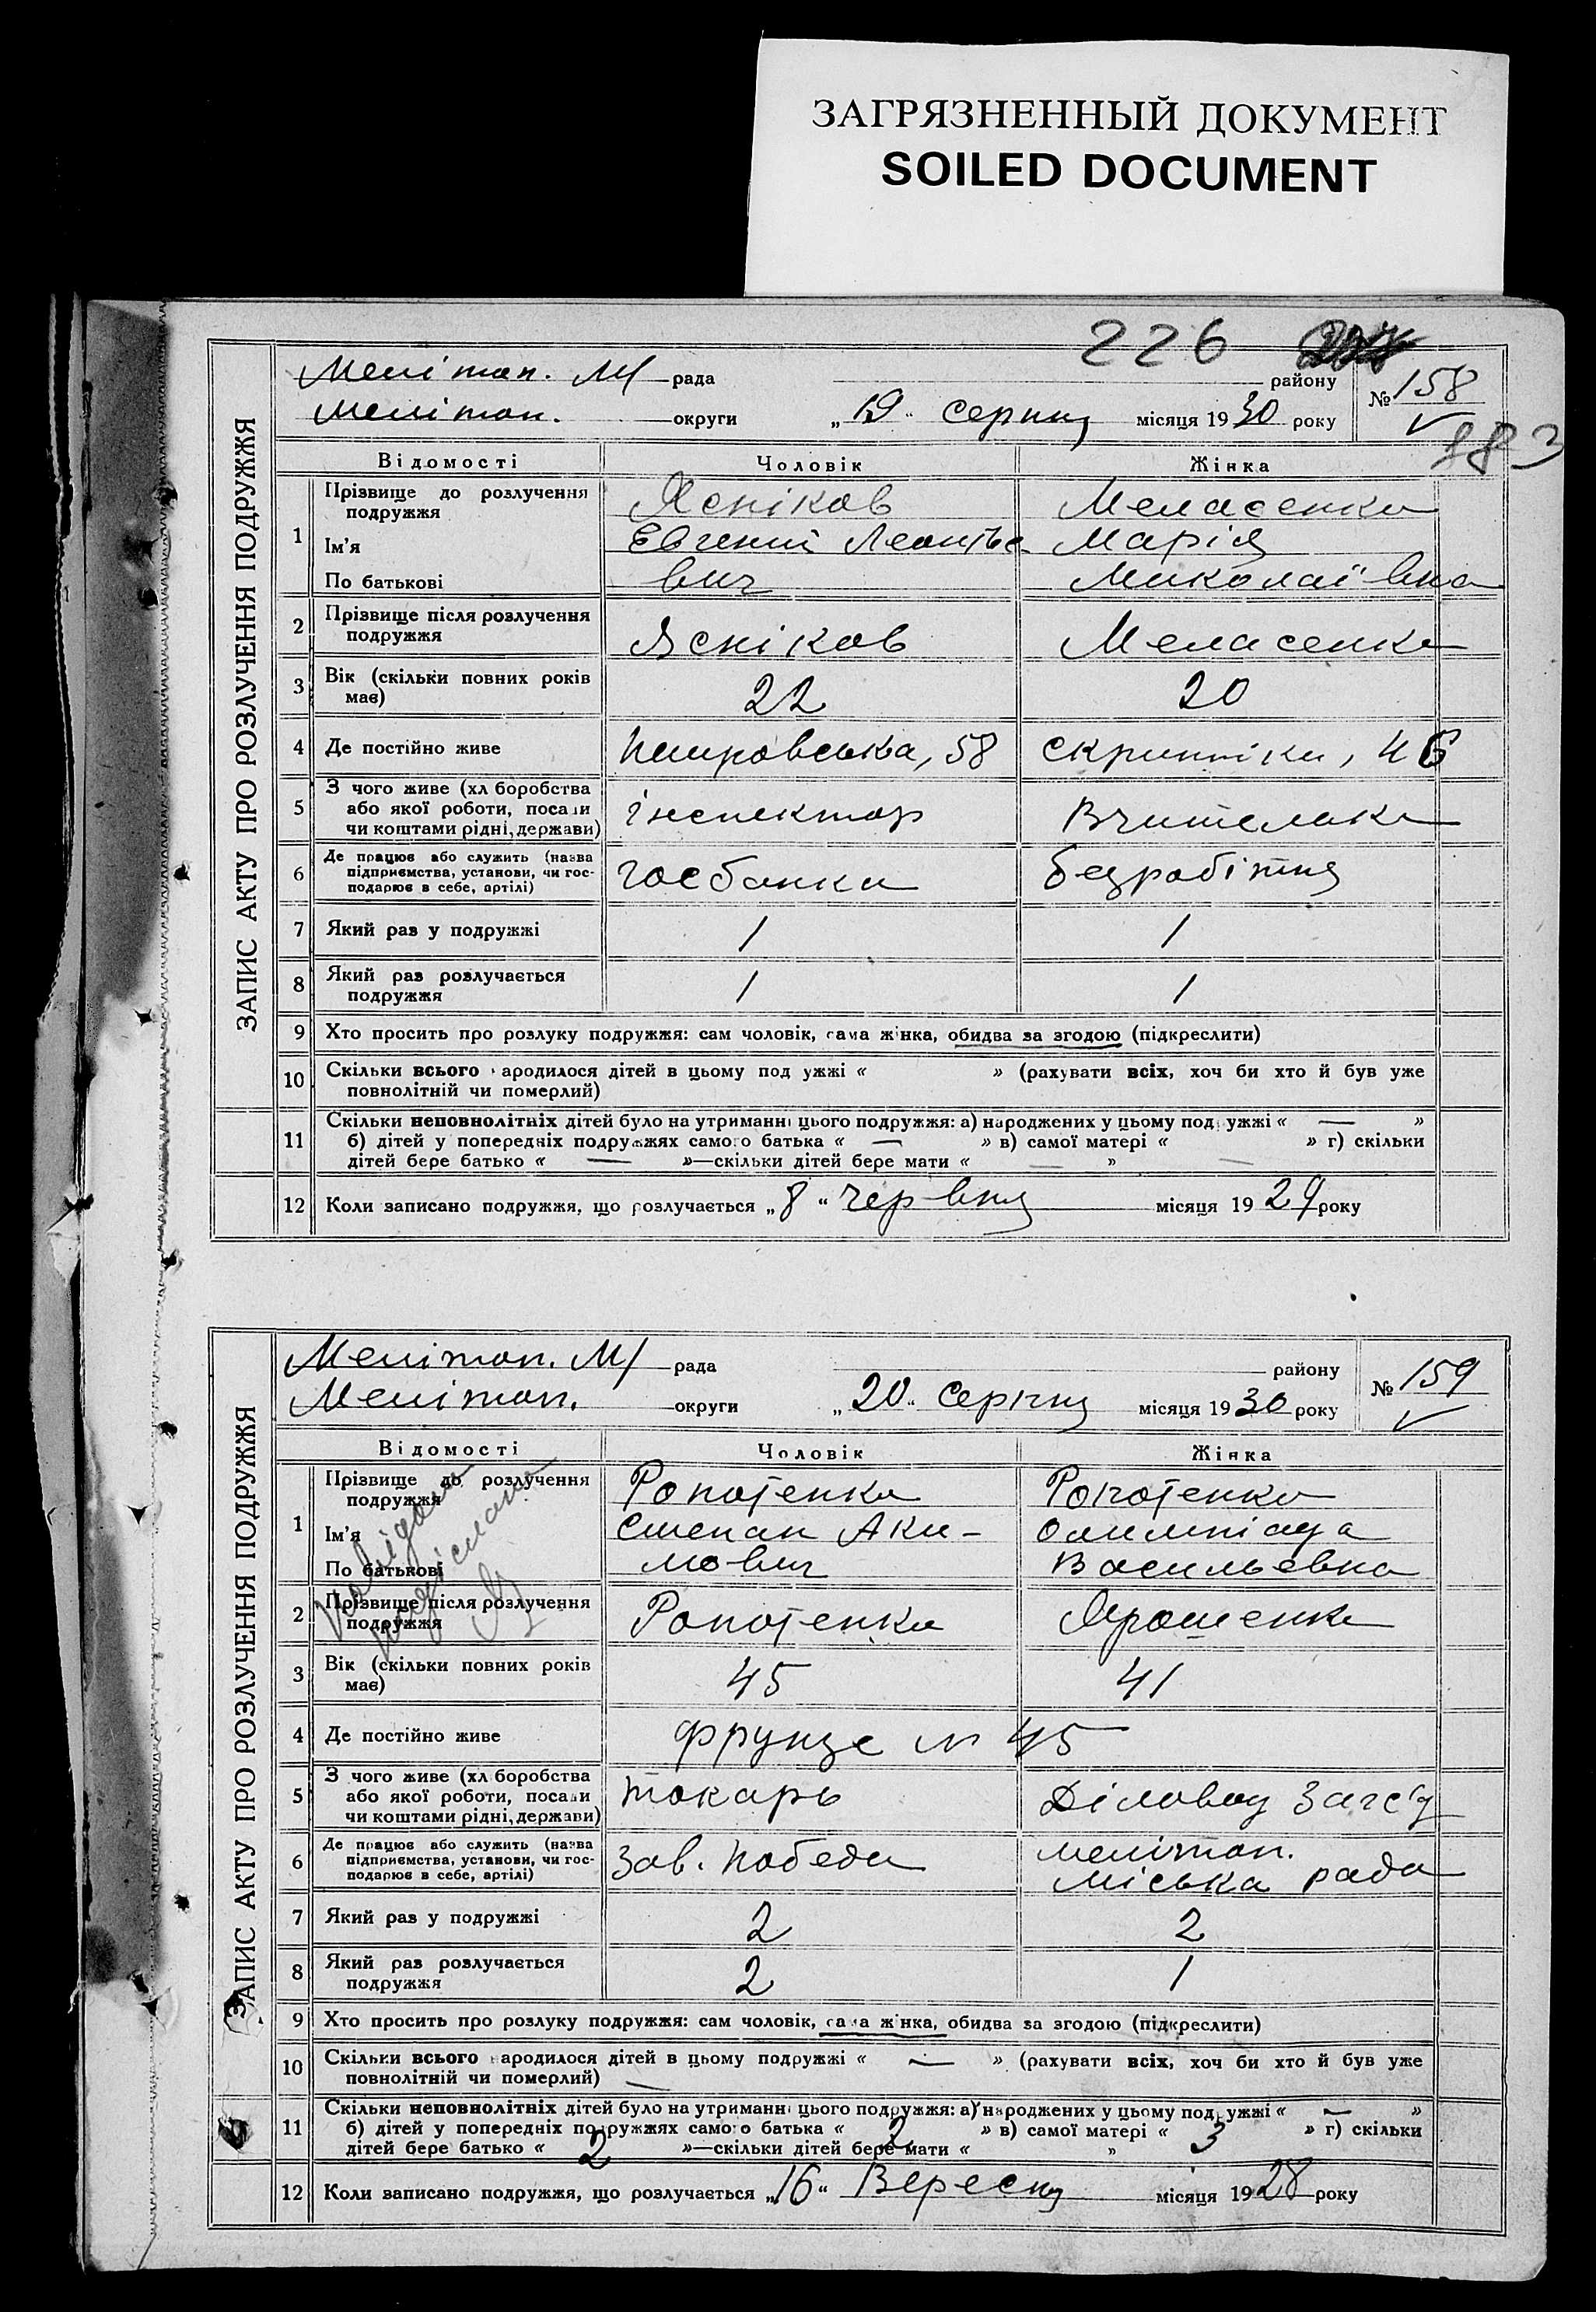 ЗАГРЯЗНЕННЫЙ ДОКУМЕНТ
SOILED DOCUMENT
226
Мелітоп. М/ рада района
№ 158
Мелітоп. округи „19“ серпня місяця 1930 року
183
ЗАПИС АКТУ ПРО РОЗЛУЧЕННЯ ПОДРУЖЖЯ
Відомості Чоловік Жінка
1 Прізвище до розлучення подружжя Ясніков Меласенко
Ім'я Евгений Леонтье- Марія
По батькові вич Миколаївна
2 Прізвище після розлучення подружжя Ясніков Меласенко
3 Вік (скільки повних років має) 22 20
4 Де постійно живе 58 Скрипніка, 46
5 З чого живе (хл боробства або якої роботи, посади чи коштами рідні, держави) інспектор Вчителька
6 Де працює або служить (назва підприємства, установи, чи господарює в себе, артілі) Госбанка безробітня
7 Який раз у подружжі 1 1
8 Який раз розлучається подружжя 1 1
9 Хто просить про розлуку подружжя: сам чоловік, сама жінка, обидва за згодою (підкреслити)
10 Скільки всього народилося дітей в цьому подружжі « » (рахувати всіх, хоч би хто й був уже
повнолітній чи померлий)
11 Скільки неповнолітніх дітей було на утриманні цього подружжя: а) народжених у цьому подружжі « — »
б) дітей у попередніх подружжях самого батька « — » в) самої матері « » г) скільки
дітей бере батько « — »—скільки дітей бере мати « — »
12 Коли записано подружжя, що розлучається „8“ червня місяця 1929 року
Мелітоп. М/ рада району
№ 159
Мелітоп. округи „20“ Серпня місяця 1930 року
ЗАПИС АКТУ ПРО РОЗЛУЧЕННЯ ПОДРУЖЖЯ
Відомості Чоловік Жінка
1 Прізвище до розлучення подружжя Ропотенко Ропотенко
Ім'я Степан Аки- Олимпіада
По батькові мович Васильевна
2 Прізвище після розлучення подружжя Ропотенко Ярошенко
3 Вік (скільки повних років має) 45 41
4 Де постійно живе Фрунзе № 45
5 З чого живе (хл боробства або якої роботи, посади чи коштами рідні, держави) токарь Діловод
6 Де працює або служить (назва підприємства, установи, чи господарює в себе, артілі) Зав. Победа мелітоп. міська рада
7 Який раз у подружжі 2 2
8 Який раз розлучається подружжя 2 1
9 Хто просить про розлуку подружжя: сам чоловік, сама жінка, обидва за згодою (підкреслити)
10 Скільки всього народилося дітей в цьому подружжі « — » (рахувати всіх, хоч би хто й був уже
повнолітній чи померлий)
11 Скільки неповнолітніх дітей було на утриманні цього подружжя: а) народжених у цьому подружжі « — »
б) дітей у попередніх подружжях самого батька « 2 » в) самої матері « 3 » г) скільки
дітей бере батько « 2 »—скільки дітей бере мати « »
12 Коли записано подружжя, що розлучається „16“ Вересня місяця 1928 року